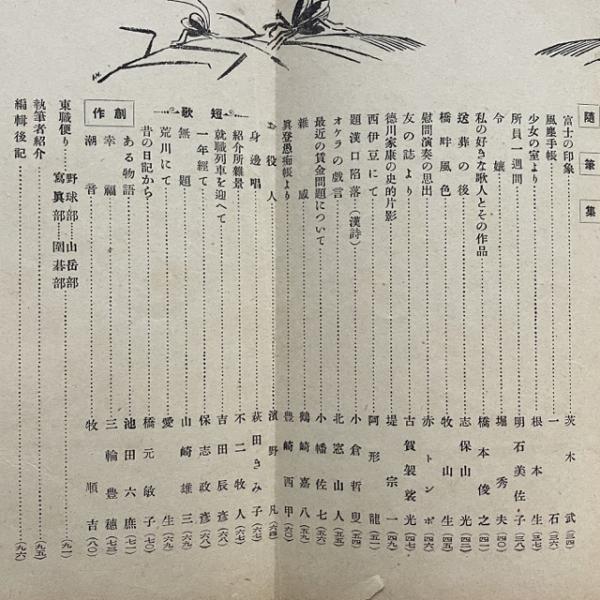 隨筆集
富士の印象……茨木武(三四)
風塵手帳……一石(三六)
少女の室より……根本生(三七)
所員一週間……明石美佐子(三八)
令孃……堀秀夫(四〇)
私の好きな歌人とその作品……橋本俊之(四一)
送葬の後……志保山光(四三)
橋畔風色……牧山生(四五)
慰問演奏の思出……赤トンボ(四六)
友の誌より……古賀袈裟光(四七)
德川家康の史的片影……堤宗一(四九)
西伊豆にて……阿形龍(五一)
題漢口陷落(漢詩)……小倉哲叟(五四)
オケラの戲言……北窓山人(五五)
最近の賃金問題について……小幡佐七(五六)
雜感……鶴崎嘉八(五九)
眞登愚痴帳より……豊崎西甲(六〇)
お役人……濱野凡(六四)
短歌
身邊唱……萩田きみ子(六七)
紹介所雜景……不二牧人(六七)
就職列車を迎へて……吉田辰彥(六八)
一年經て……保志政彥(六八)
無題……山崎雄三(六九)
荒川にて……愛生(六九)
昔の日記から……橋元敏子(七〇)
創作
ある物語……池田六庶(七一)
幸福……三輪豊穗(七三)
潮音……牧順吉(八〇)
東職便り……野球部…山岳部
寫眞部…圍碁部……(九一)
執筆者紹介……(九五)
編輯後記……(九六)